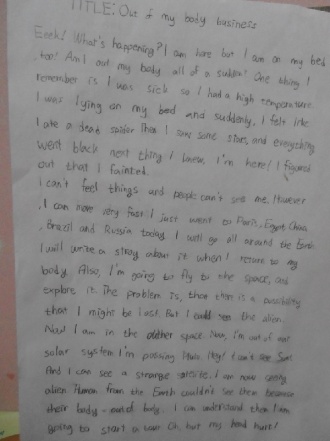 TITLE: Out of my body business
Eeek! What's happening? I am here but I am on my bed
, too! Am I out my body all of a sudden! One thing I
remember is I was sick so I had a high temperature
I was lying on my bed and suddenly, I felt like
I ate a dead spider. Then I saw some stars, and everything
went black next thing I knew I'm here! I figured
out that I fainted.
I can't feel things and people can't see me. However
, I can move very fast. I just went to Paris, Egypt, China
, Brazil and Russia today. I will go all around the Earth
I will write a story about it when I return to my
body. Also, I'm going to fly to the space, and
explore it. The problem is, there is a possibility
that I might be lost. But I could see the alien.
Now I am in the outer space. Now, I'm out of our
solar system. I'm passing I can't see Sun!
And I can see a strange I am now seeing
alien. Human from the Earth couldn't see them because
their body - out of body. I can understand them. I am
going to start a Oh but my head hurts!